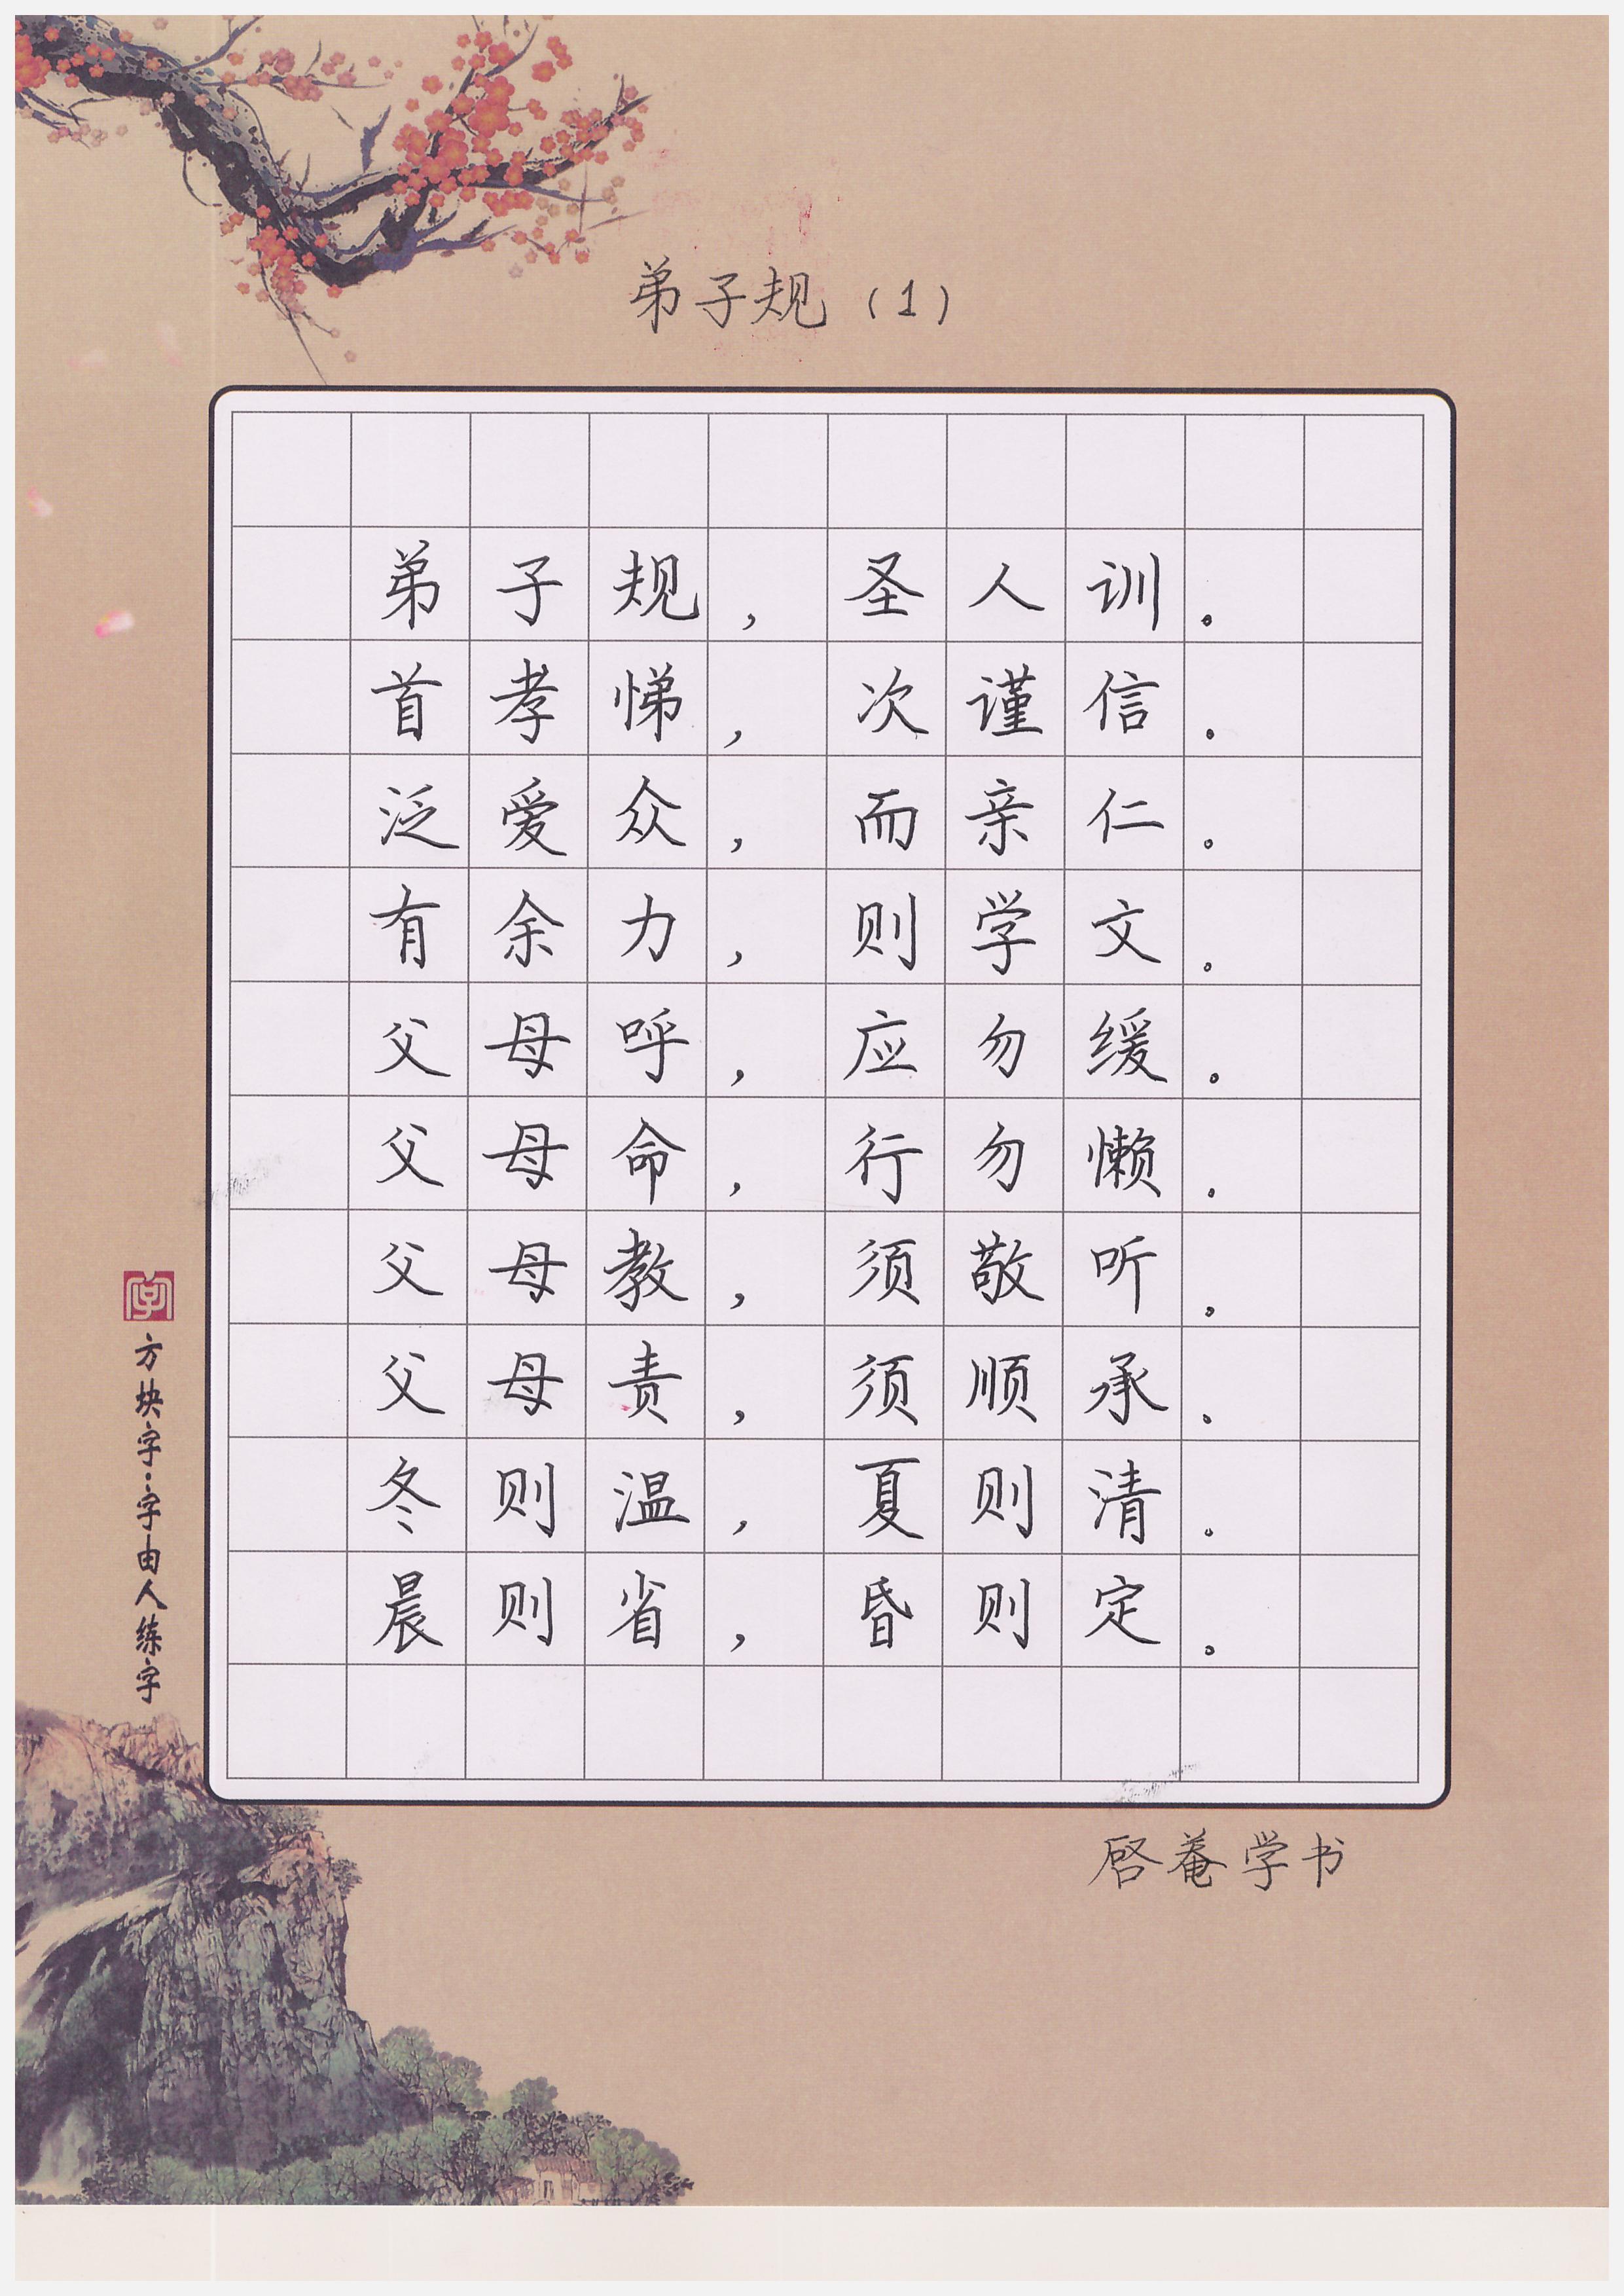 弟子规（1）
弟子规，圣人训。
首孝悌，次谨信。
泛爱众，而亲仁。
有余力，则学文。
父母呼，应勿缓。
父母命，行勿懒。
父母教，须敬听。
父母责，须顺承。
冬则温，夏则清。
晨则省，昏则定。
字
方块字·字由人练字
启菴学书